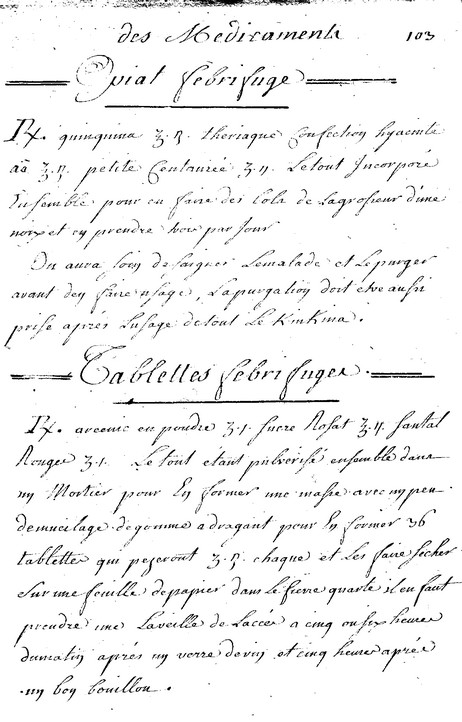 des Medicaments 103
Opiat febrifuge
℞. quinquina ʒ.ß. theriaque Confection hyacinte
aã ʒ.ß. petite Centaurée ʒ.ij. Le tout Incorporé
Ensemble pour en faire des bols de Lagrosseur d'une
noix et en prendre trois par Jour
On aura soin de saigner Lemalade et Lepurger
avant d'en faire usage, Lapurgation doit etre aussi
prise après Lusage de tout Le KinKina.
Tablettes febrifuges
℞. arcenic en poudre ʒ.i. Sucre Rosat ʒ.ij. Santal
Rouge ʒ.i. Le tout etant pulvérisé ensemble dans
un Mortier pour En former une masse avec un peu
de mucilage de gomme adragant pour En former 36
tablettes qui peseront ʒ.ß. chaque et Les faire secher
sur une feuille de papier dans Lefievre quarte il en faut
prendre une Laveille de Laccés a cinq ou six heures
dumatin aprés un verre devin et cinq heures aprés
un bon bouillon.